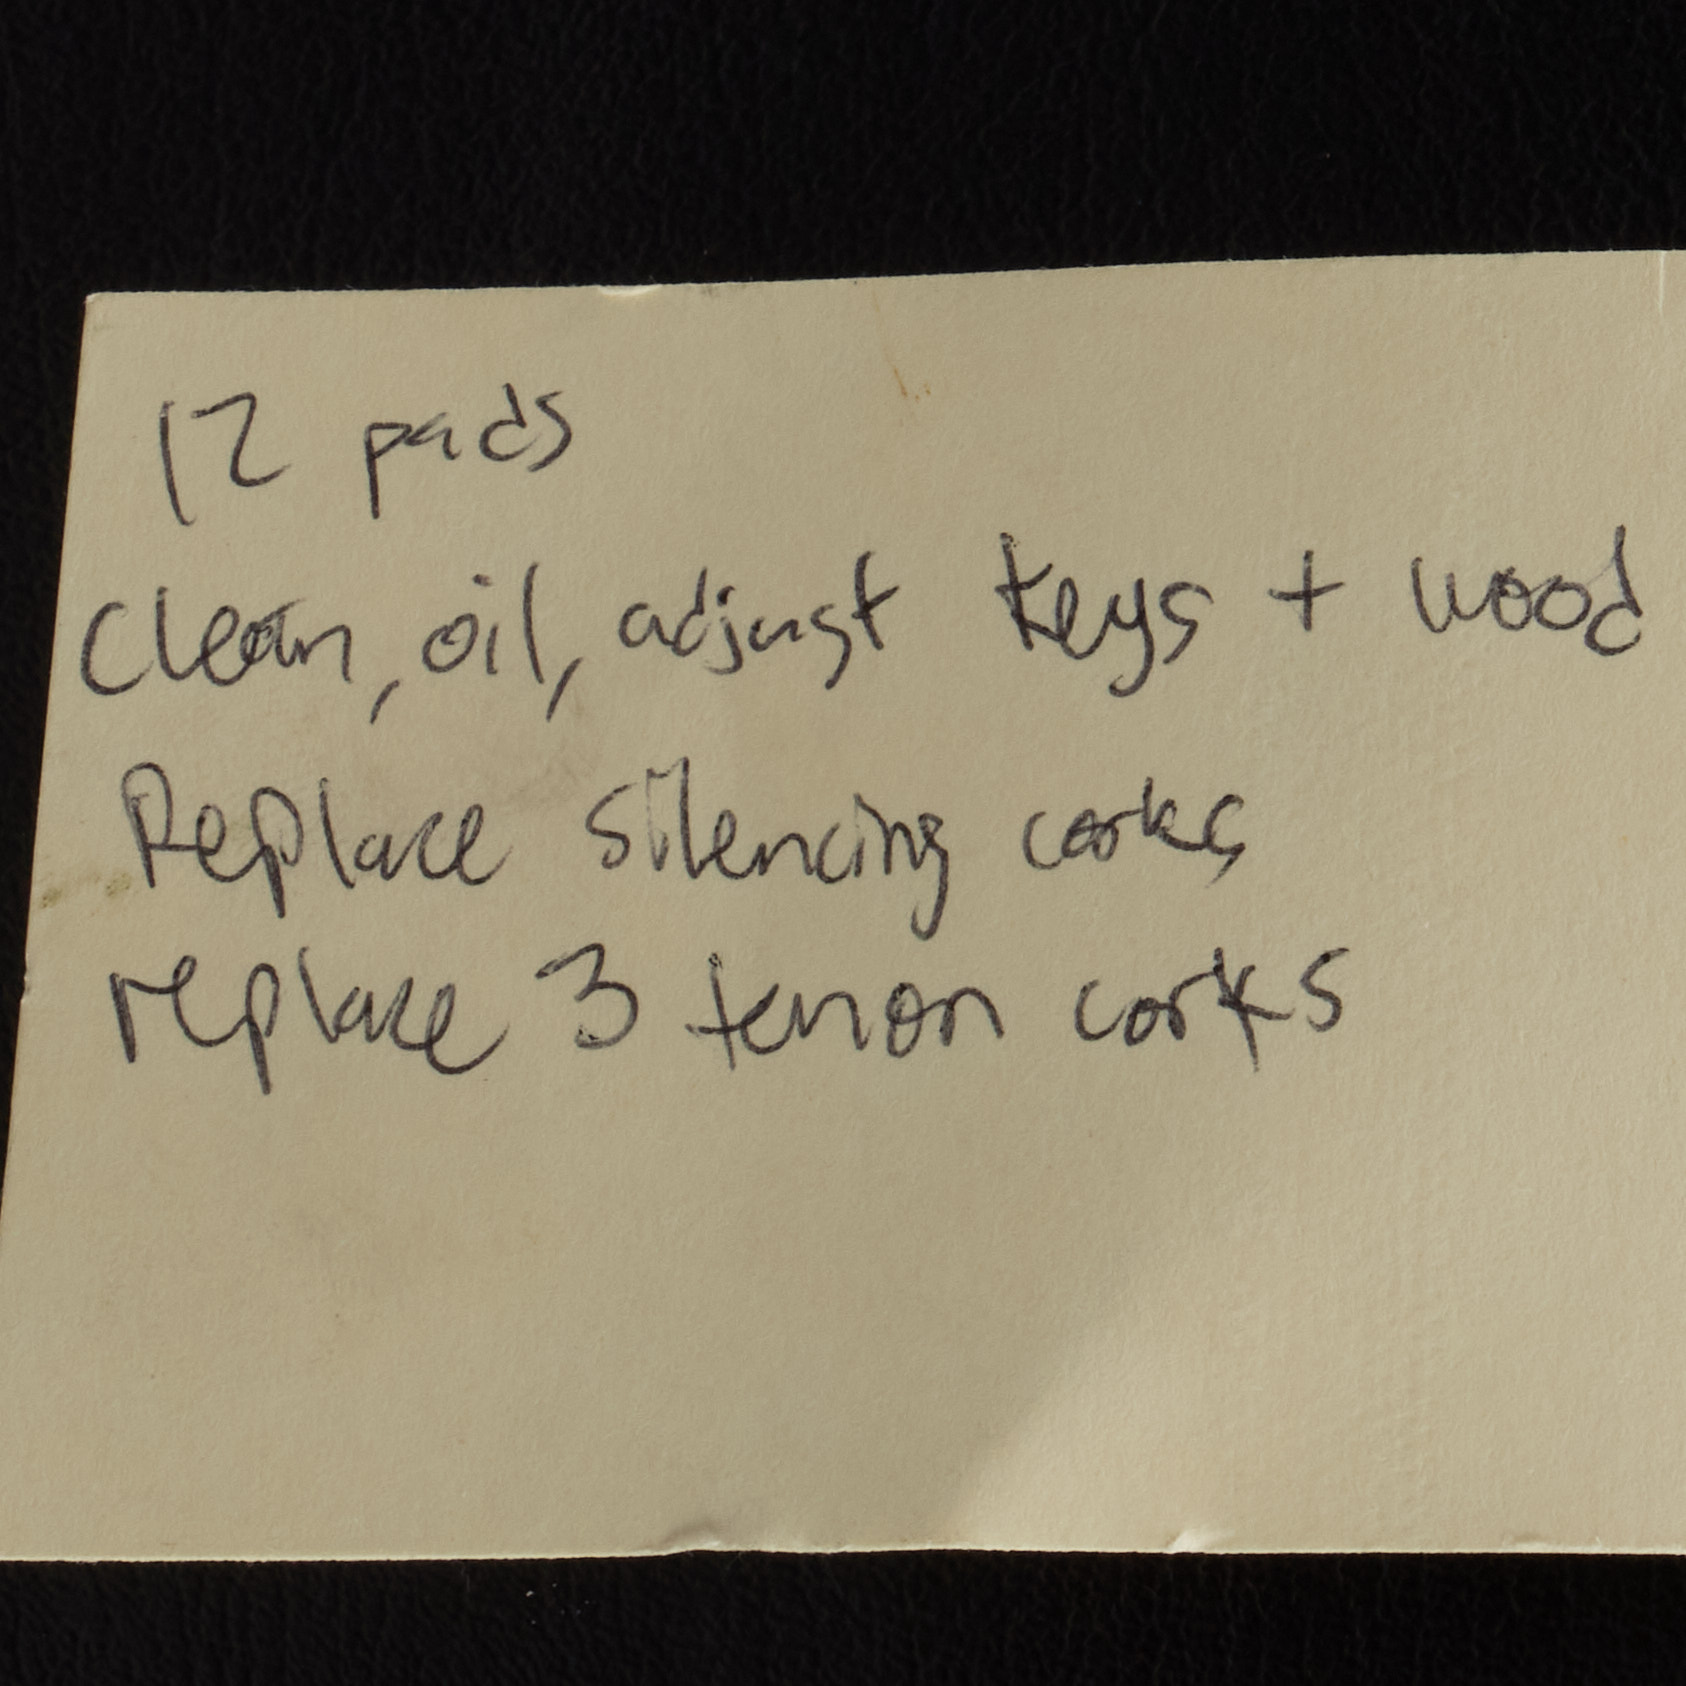 12 pads
Clean, oil, adjust keys + wood
Replace silencing corks
replace 3 tenon corks